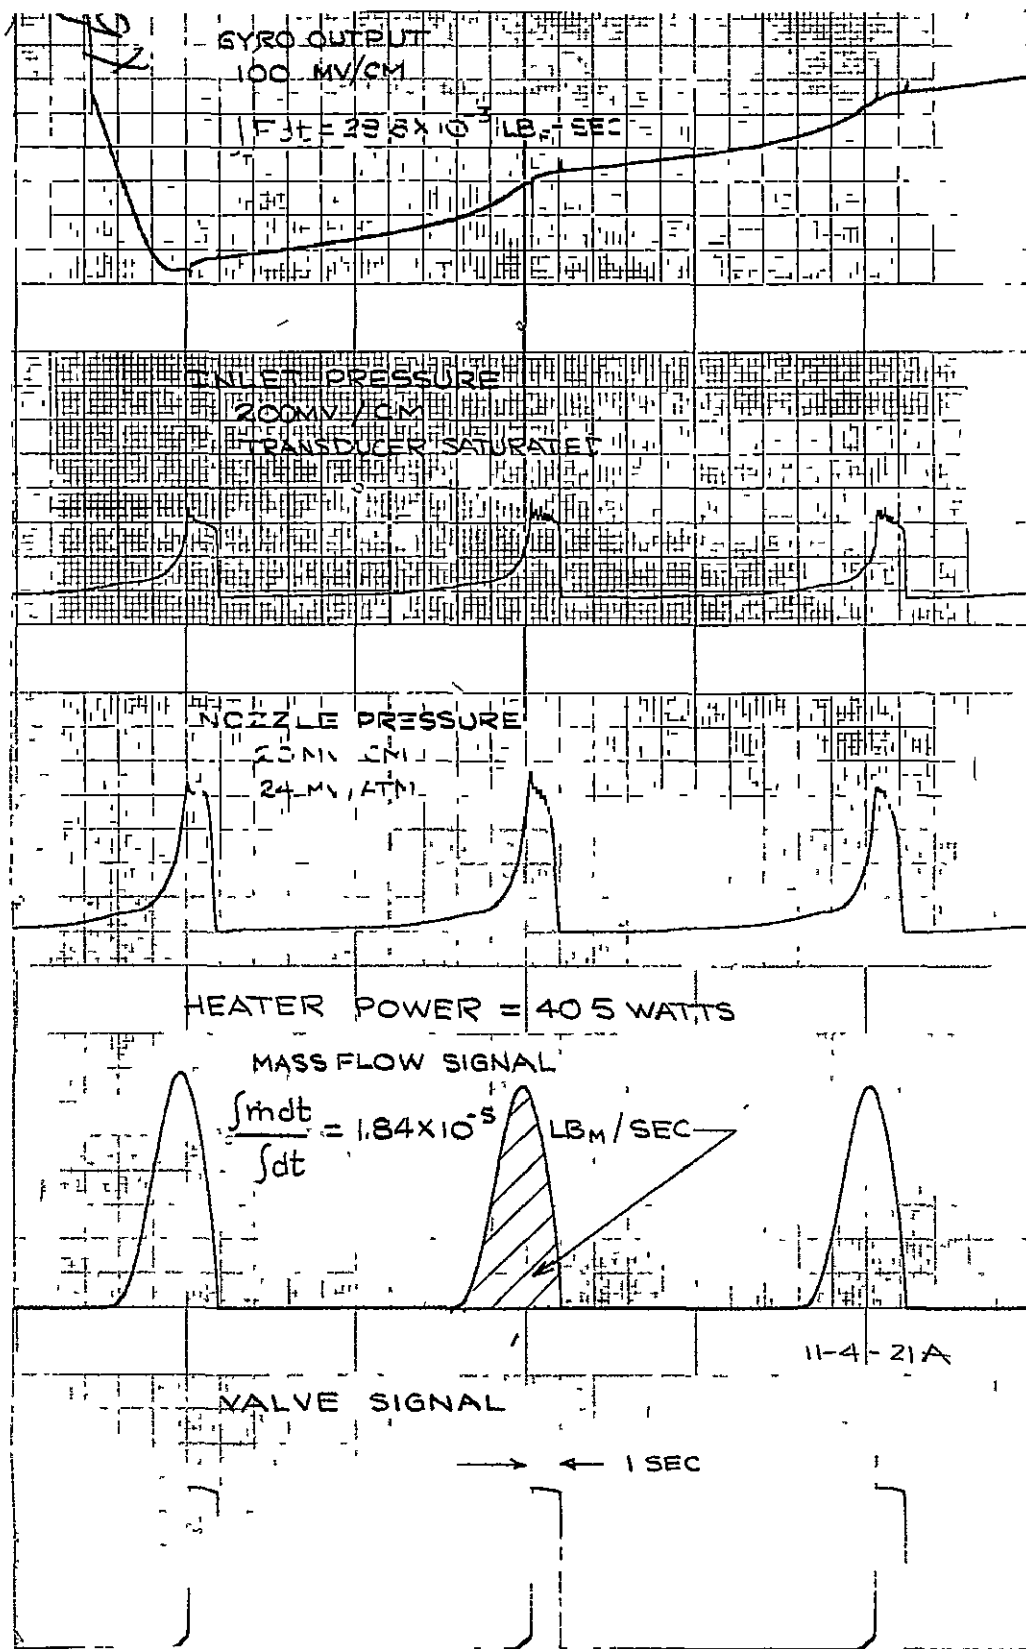 GYRO OUTPUT
100 MV/CM
∫F dt = 29.8 × 10⁻³ LB_F-SEC
INLET PRESSURE
200MV/CM
TRANSDUCER SATURATED
NOZZLE PRESSURE
CM
24 MV/ATM
HEATER POWER = 40 5 WATTS
MASS FLOW SIGNAL
∫ṁdt / ∫dt = 1.84×10⁻⁵ LB_M/SEC
11-4-21A
VALVE SIGNAL
1 SEC